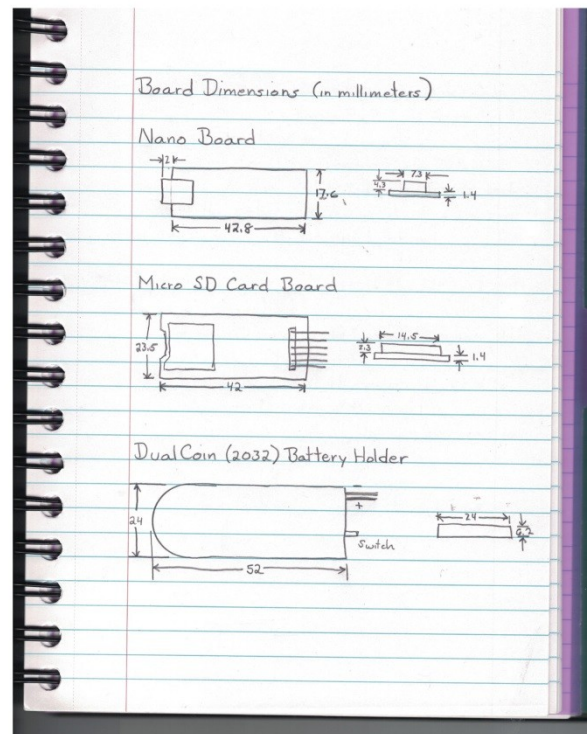 Board Dimensions (in millimeters)
Nano Board
2
7.3
4.3
1.4
17.6
42.8
Micro SD Card Board
23.5
14.5
1.4
42
Dual Coin (2032) Battery Holder
-
+
24
24
Switch
52